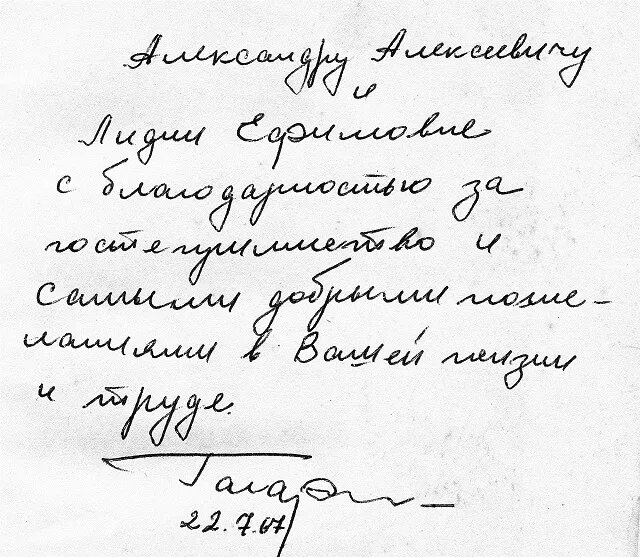 Александру Алексеевичу
и
Лидии Ефимовне
с благодарностью за
гостеприимство и
самыми добрыми поже-
ланиями в Вашей жизни
и труде.
Гагарин
22.7.67